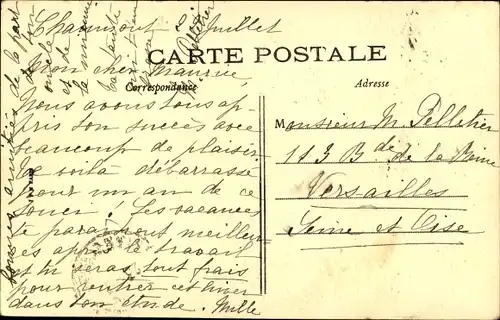 Chaumont 8 Juillet
CARTE POSTALE
Correspondance
Adresse
Mon cher Maurice
Nous avons tous ap
pris ton succès avec
beaucoup de plaisir.
Te voilà débarrassé
pour un an de ce
souci! Les vacances
te paraîtront meilleu-
res après le travail
et tu seras tout frais
pour rentrer cet hiver
dans ton étude. Mille
bonnes amitiés de la part
de ton
oncle
et de
ta tante
Pelletier
Monsieur M. Pelletier
113 Bd de la Reine
Versailles
Seine et Oise